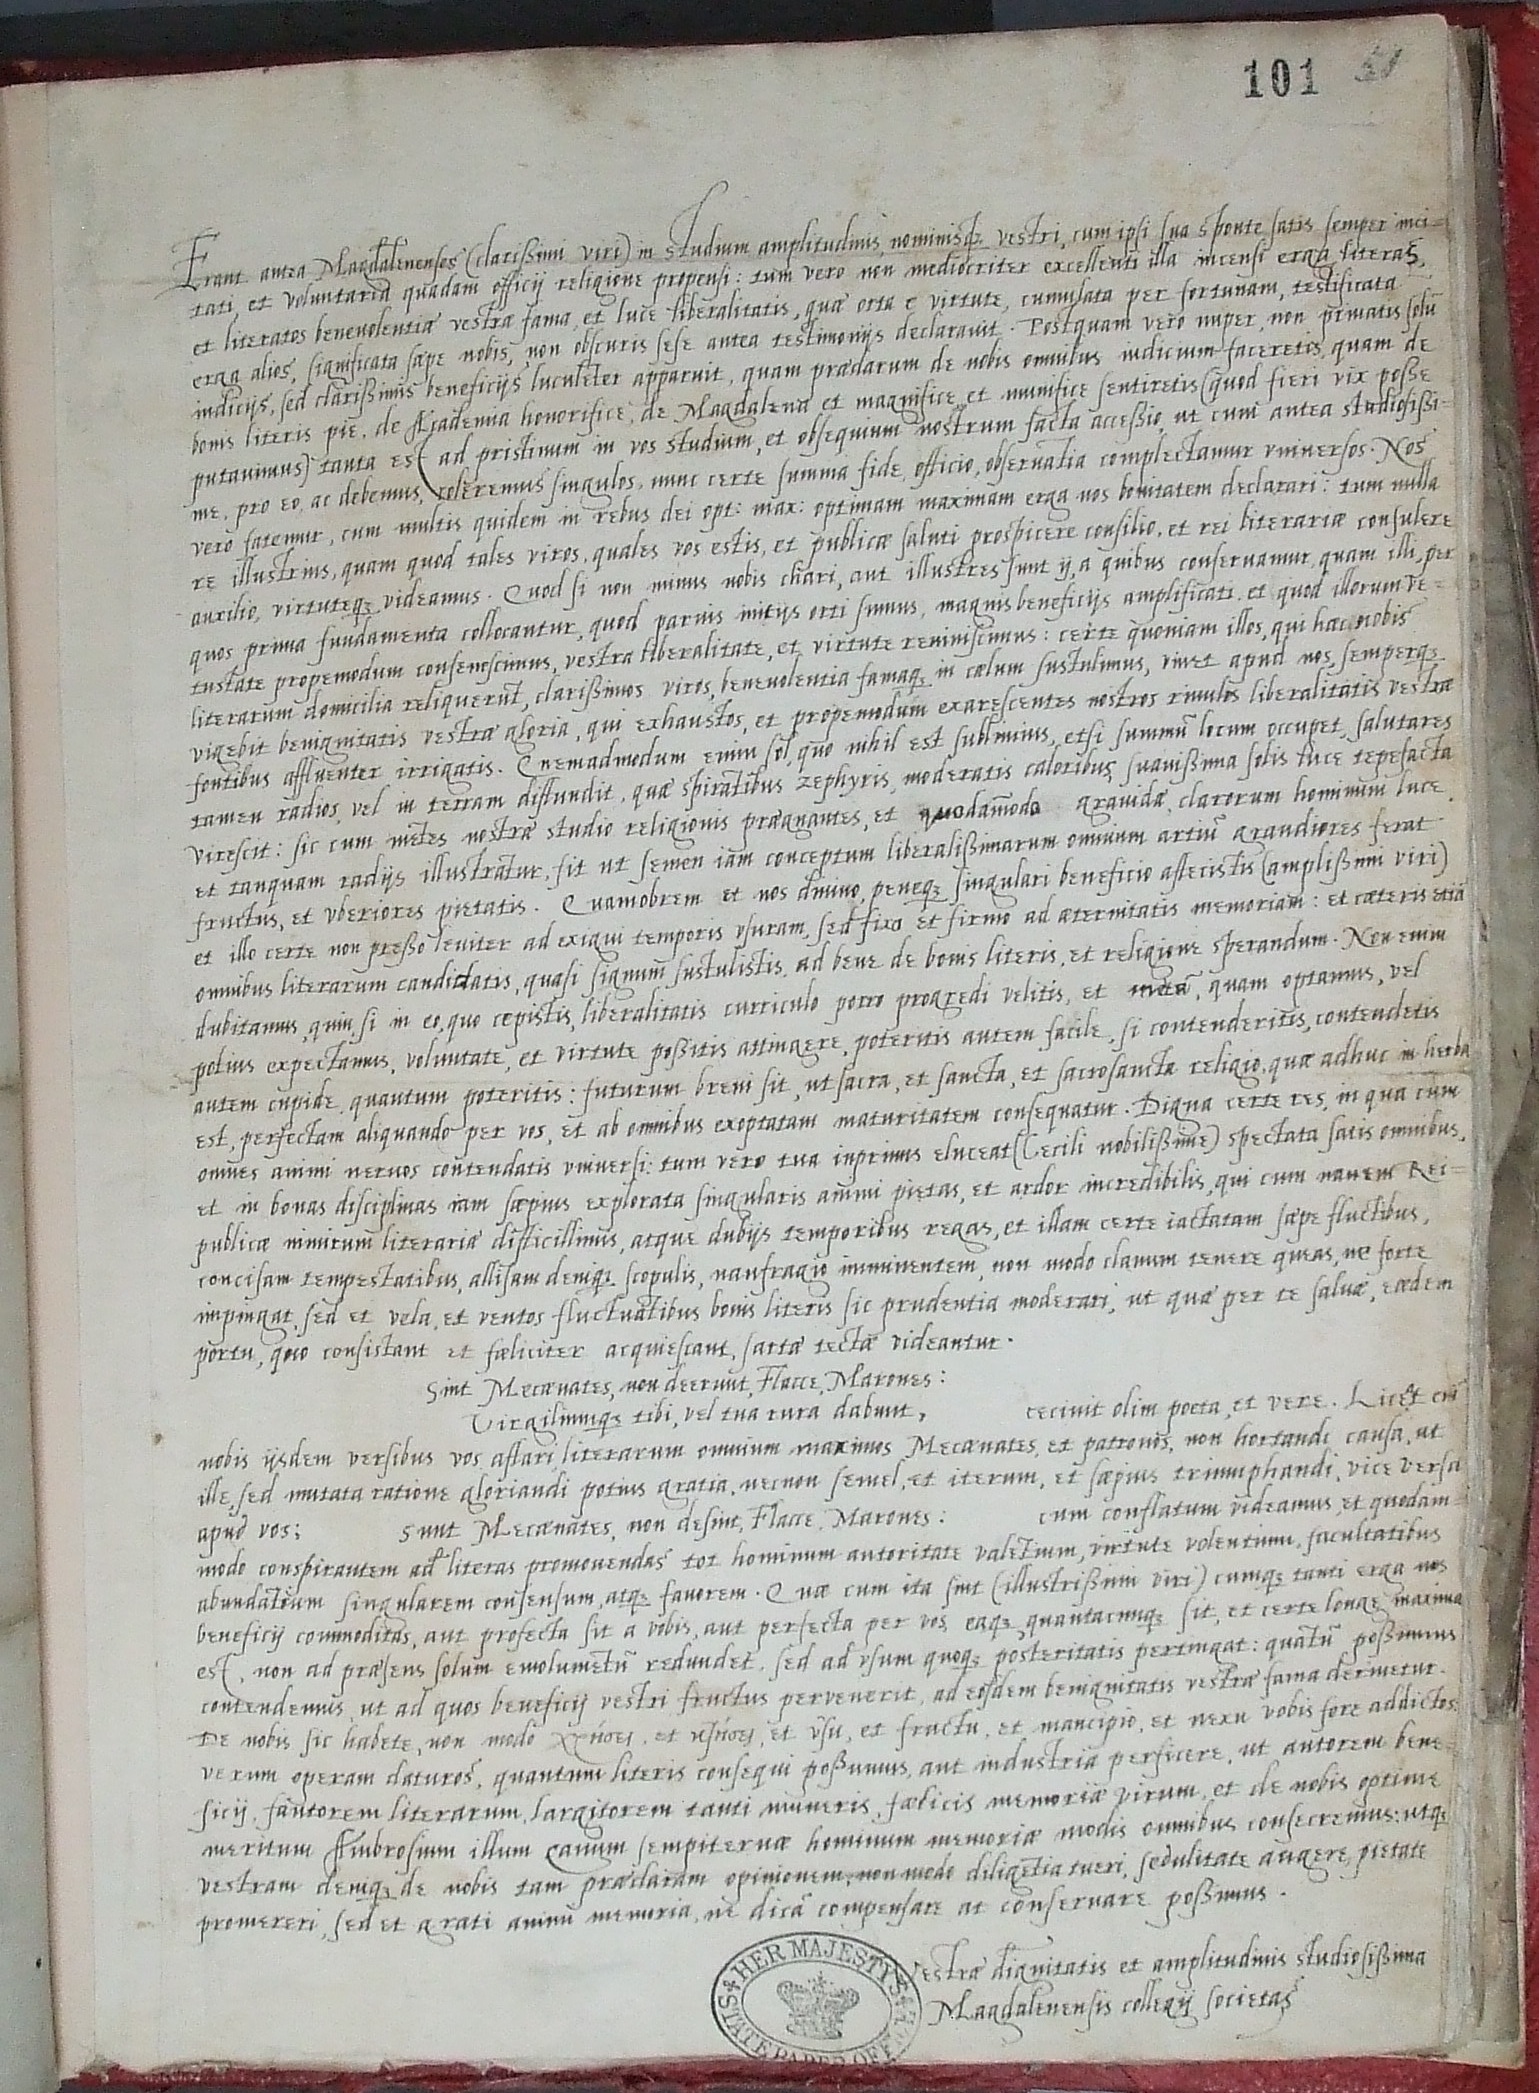 101 51
Erant antea Magdalenenses (clarißimi viri) in studium amplitudinis, nominisq; vestri, cum ipsi sua sponte satis semper inci-
tati, et voluntaria quadam officij religione propensi: tum vero non mediocriter excellenti illa incensi erga literas,
et literatos benevolentiæ vestræ fama, et luce liberalitatis, quæ orta e virtute, cumulata per fortunam, testificata
erga alios, significata sæpe nobis, non obscuris sese antea testimonijs declaravit. Postquam vero nuper, non privatis solũ
indicijs, sed clarißimis beneficijs luculẽter apparuit, quam præclarum de nobis omnibus iudicium faceretis, quam de
bonis literis pie, de Academia honorifice, de Magdalena et magnifice, et munifice sentiretis (quod fieri vix posse
putavimus) tanta est ad pristinum in vos studium, et obsequium nostrum facta accessio, ut cum antea studiosißi-
me, pro eo, ac debemus, coleremus singulos, nunc certe summa fide, officio, observãtia complectamur vniversos. Nos
vero fatemur, cum multis quidem in rebus dei opt: max: optimam maximam erga nos bonitatem declarari: tum nulla
re illustrius, quam quod tales viros, quales vos estis, et publicæ saluti prospicere consilio, et rei literariæ consulere
auxilio, virtuteq; videamus. Quod si non minus nobis chari, aut illustres sunt ij, a quibus conservamur, quam illi, per
quos prima fundamenta collocantur, quod parvis initijs orti sumus, magnis beneficijs amplificati, et quod illorum ve-
tustate propemodum consenescimus, vestra liberalitate, et virtute revivisimus: certe quoniam illos, qui hæc nobis
literarum domicilia reliquerũt, clarißimos viros, benevolentia famaq; in cælum sustulimus, vivet apud nos, semperq;
vigebit benignitatis vestræ gloria, qui exhaustos, et propemodum exarescentes nostros rivulos liberalitatis vestræ
fontibus affluenter irrigatis. Quemadmodum enim sol, quo nihil est sublimius, etsi summũ locum occupet, salutares
tamen radios, vel in terram diffundit, quæ spirãtibus zephyris, moderatis caloribus, suavißima solis luce tepefacta
virescit: sic cum mẽtes nostræ studio religionis prægnantes, et quodãmodo gravidæ, clarorum hominum luce,
et tanquam radijs illustrãtur, fit ut semen iam conceptum liberalißimarum omnium artiũ grandiores ferat
fructus, et vberiores pietatis. Quamobrem et nos divino, peneq; singulari beneficio affecistis (amplißimi viri)
et illo certe non preßo leviter ad exigui temporis vsuram, sed fixo et firmo ad æternitatis memoriam: et cæteris etiã
omnibus literarum candidatis, quasi signum sustulistis, ad bene de bonis literis, et religione sperandum. Non enim
dubitamus, quin, si in eo, quo cepistis, liberalitatis curriculo porro progredi velitis, et metã, quam optamus, vel
potius expectamus, voluntate, et virtute poßitis attingere, poteritis autem facile, si contenderitis, contendetis
autem cupide, quantum poteritis: futurum brevi sit, ut sacra, et sancta, et sacrosancta religio, quæ adhuc in herba
est, perfectam aliquando per vos, et ab omnibus exoptatam maturitatem consequatur. Digna certe res, in qua cum
omnes animi nervos contendatis vniversi: tum vero tua inprimis eluceat (Cecili nobilißime) spectata satis omnibus,
et in bonas disciplinas iam sæpius explorata singularis animi pietas, et ardor incredibilis, qui cum navem Rei-
publicæ nimirum literariæ difficillimis, atque dubijs temporibus regas, et illam certe iactatam sæpe fluctibus,
concisam tempestatibus, allisam deniq; scopulis, naufragio imminentem, non modo clavum tenere queas, ne forte
impingat, sed et vela, et ventos fluctuãtibus bonis literis sic prudentia moderari, ut quæ per te salvæ, eædem
portu, quo consistant et fæliciter acquiescant, sartæ tectæ videantur.
Sint Mecænates, non deerunt, Flacce, Marones:
Virgiliumq; tibi, vel tua rura dabunt, cecinit olim poeta, et vere. Licet eñi
nobis ijsdem versibus vos affari, literarum omnium maximos Mecænates, et patronos, non hortandi causa, ut
ille, sed mutata ratione gloriandi potius gratia, necnon semel, et iterum, et sæpius triumphandi, vice versa
apud vos: Sunt Mecænates, non desint, Flacce, Marones: cum conflatum videamus, et quodam-
modo conspirantem ad literas promovendas tot hominum autoritate valẽtium, virtute volentium, facultatibus
abundãtium singularem consensum, atq; favorem. Quæ cum ita sint (illustrißimi viri) cumq; tanti erga nos
beneficij commoditas, aut profecta sit a vobis, aut perfecta per vos, eaq; quantacunq; sit, et certe longe maxima
est, non ad præsens solum emolumẽtũ redundet, sed ad vsum quoq; posteritatis pertingat: quãtũ poßimus
contendemus, ut ad quos beneficij vestri fructus pervenerit, ad eosdem benignitatis vestræ fama derivetur.
De nobis sic habete, non modo χρήσει, et κτήσει, et vsu, et fructu, et mancipio, et nexu vobis fore addictos:
verum operam daturos, quantum literis consequi poßumus, aut industria perficere, ut autorem bene-
ficij, fautorem literarum, largitorem tanti muneris, fælicis memoriæ virum, et de nobis optime
meritum Ambrosium illum Cavum sempiternæ hominum memoriæ modis omnibus consecremus: utq;
vestram deniq; de nobis tam præclaram opinionem, non modo diligẽtia tueri, sedulitate augere, pietate
promereri, sed et grati animi memoria, ne dicã compensare at conservare poßimus.
Vestræ dignitatis et amplitudinis studiosißima
Magdalenensis collegij societas
HER MAJESTY'S STATE PAPER OFF